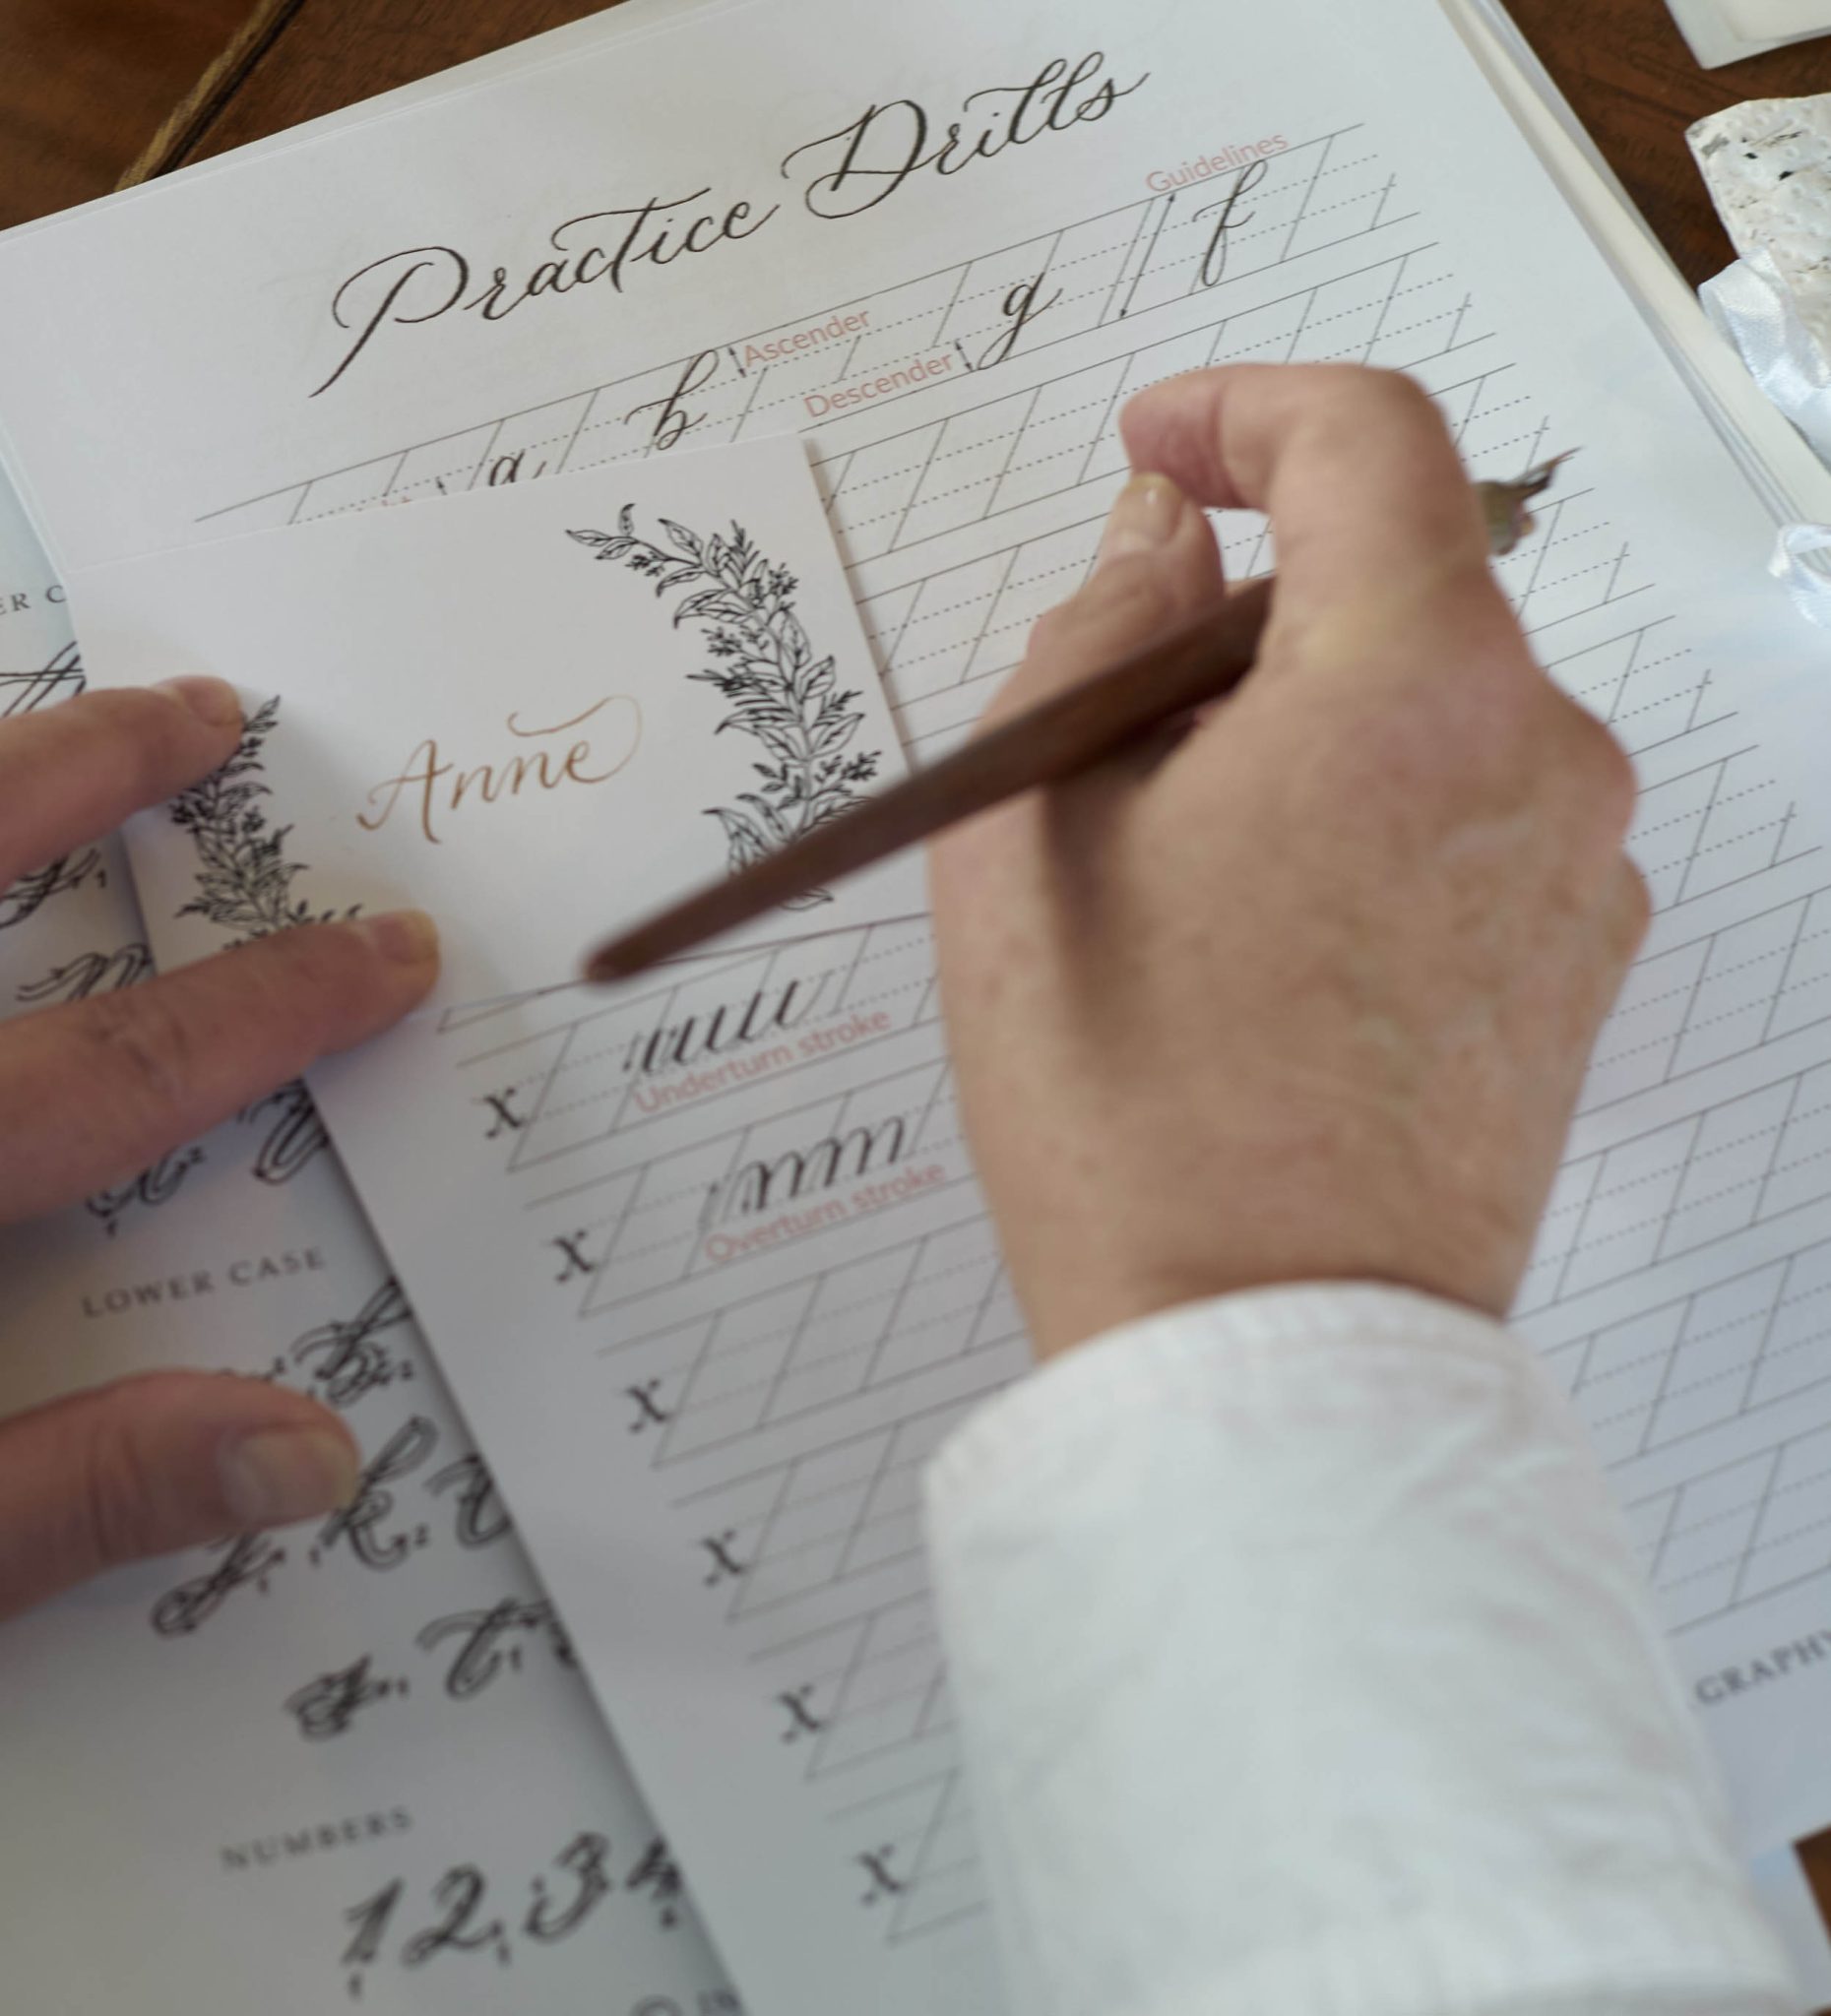 Practice Drills
Guidelines
Ascender
Descender
a b g f
Anne
Underturn stroke
x
Overturn stroke
x
x
x
x
x
LOWER CASE
k
NUMBERS
1 2 3 4